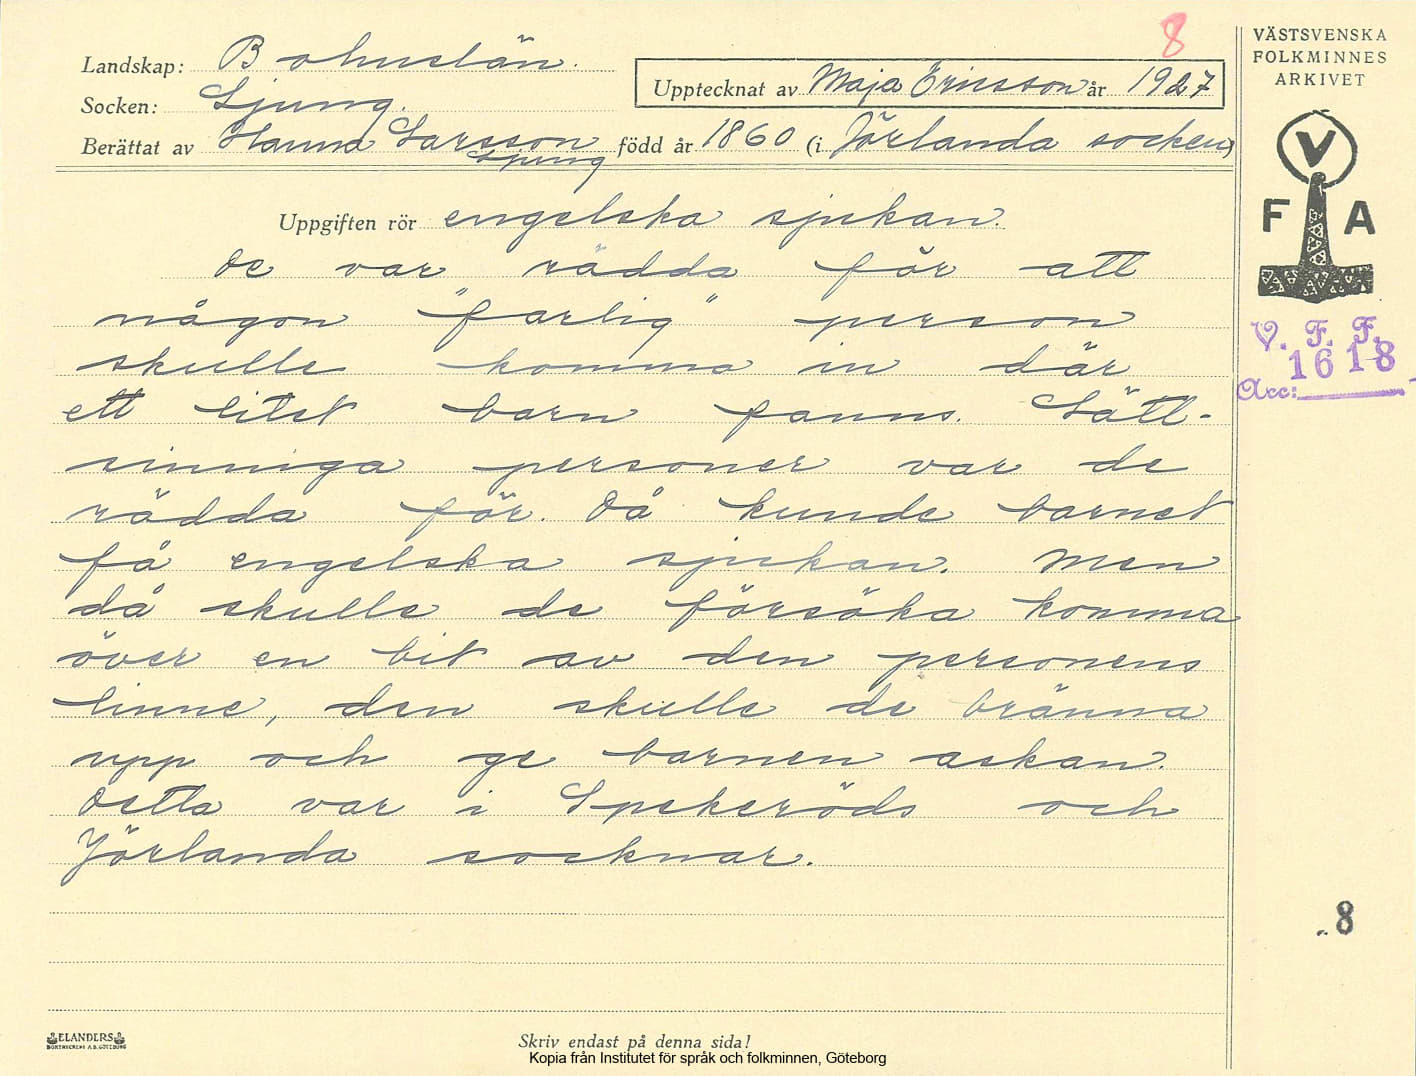 8
Landskap: Bohuslän.
Socken: Ljung.
Upptecknat av Maja Ericsson år 1927
Berättat av Hanna Larsson född år 1860 (i Jörlanda socken)
Ljung
VÄSTSVENSKA
FOLKMINNES
ARKIVET
V
F A
V. F. F.
1618
Acc:
Uppgiften rör engelska sjukan.
De var rädda för att
någon "farlig" person
skulle komma in där
ett litet barn fanns. Lätt-
sinniga personer var de
rädda för. Då kunde barnet
få engelska sjukan. Men
då skulle de försöka komma
över en bit av den personens
linne, den skulle de bränna
upp och ge barnen askan.
Detta var i Spekeröds och
Jörlanda socknar.
8
ELANDERS
BOKTRYCKERI A.B. GÖTEBORG
Skriv endast på denna sida!
Kopia från Institutet för språk och folkminnen, Göteborg